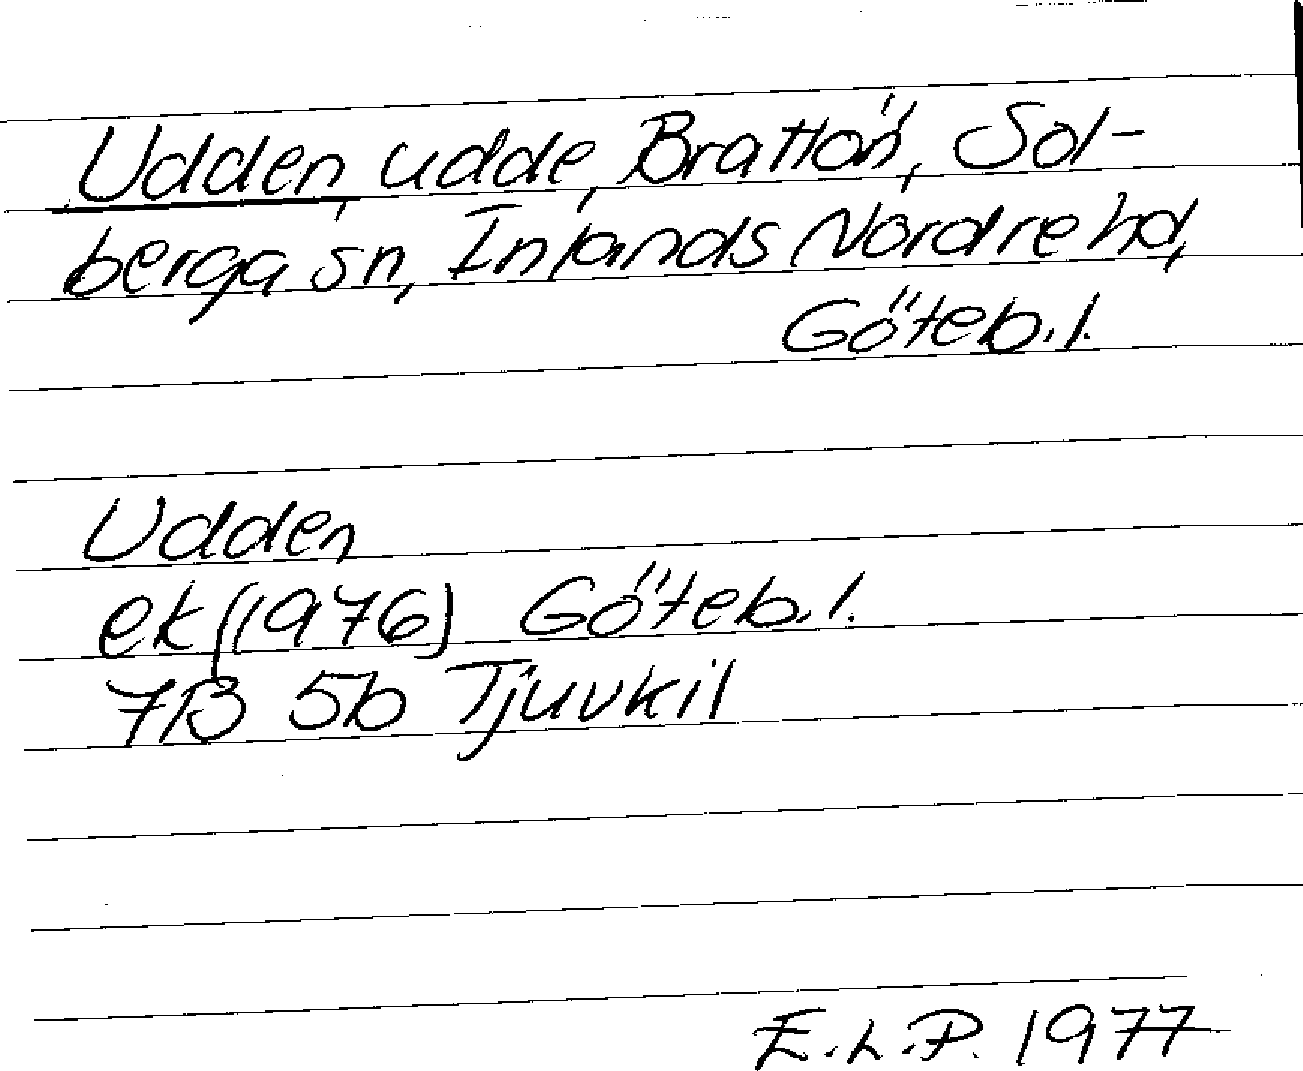 Udden, udde, Brattön, Sol-
berga sn, Inlands Nordre hd,
Göteb. l.
Udden
ek (1976) Göteb. l.
7B 5b Tjuvkil
E.L.P. 1977